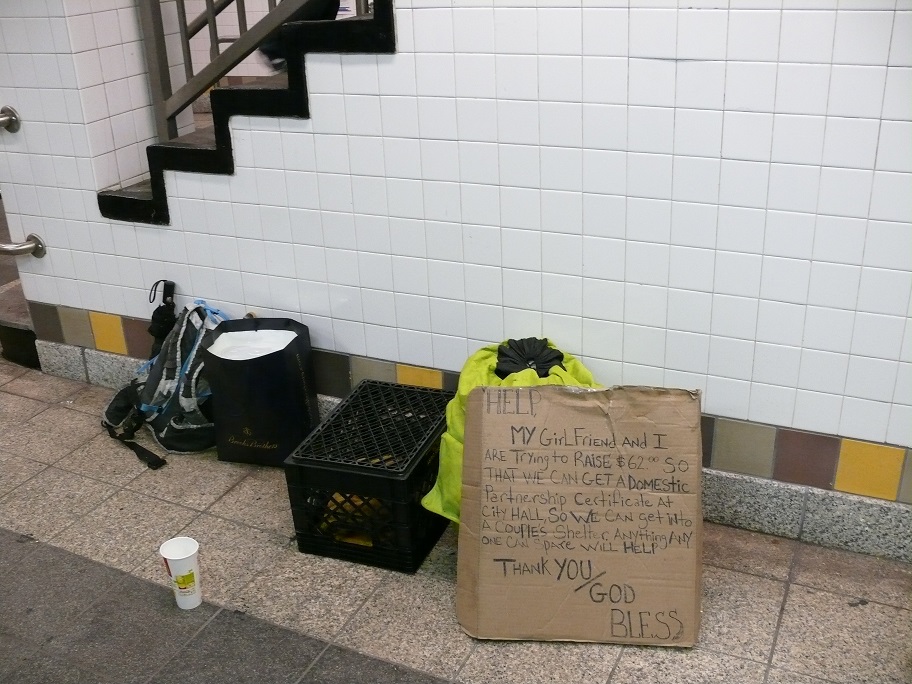 HELP
MY GirLFriend AND I
ARE Trying to RAISE $62.00 SO
THAT WE CAN GET A DOMESTIC
Partnership Certificate At
City HALL, SO WE CAN get into
A COUPLES Shelter. Anything ANY
ONE CAN SPARE WILL HELP
THANK YOU/
GOD
BLESS
Brooks Brothers